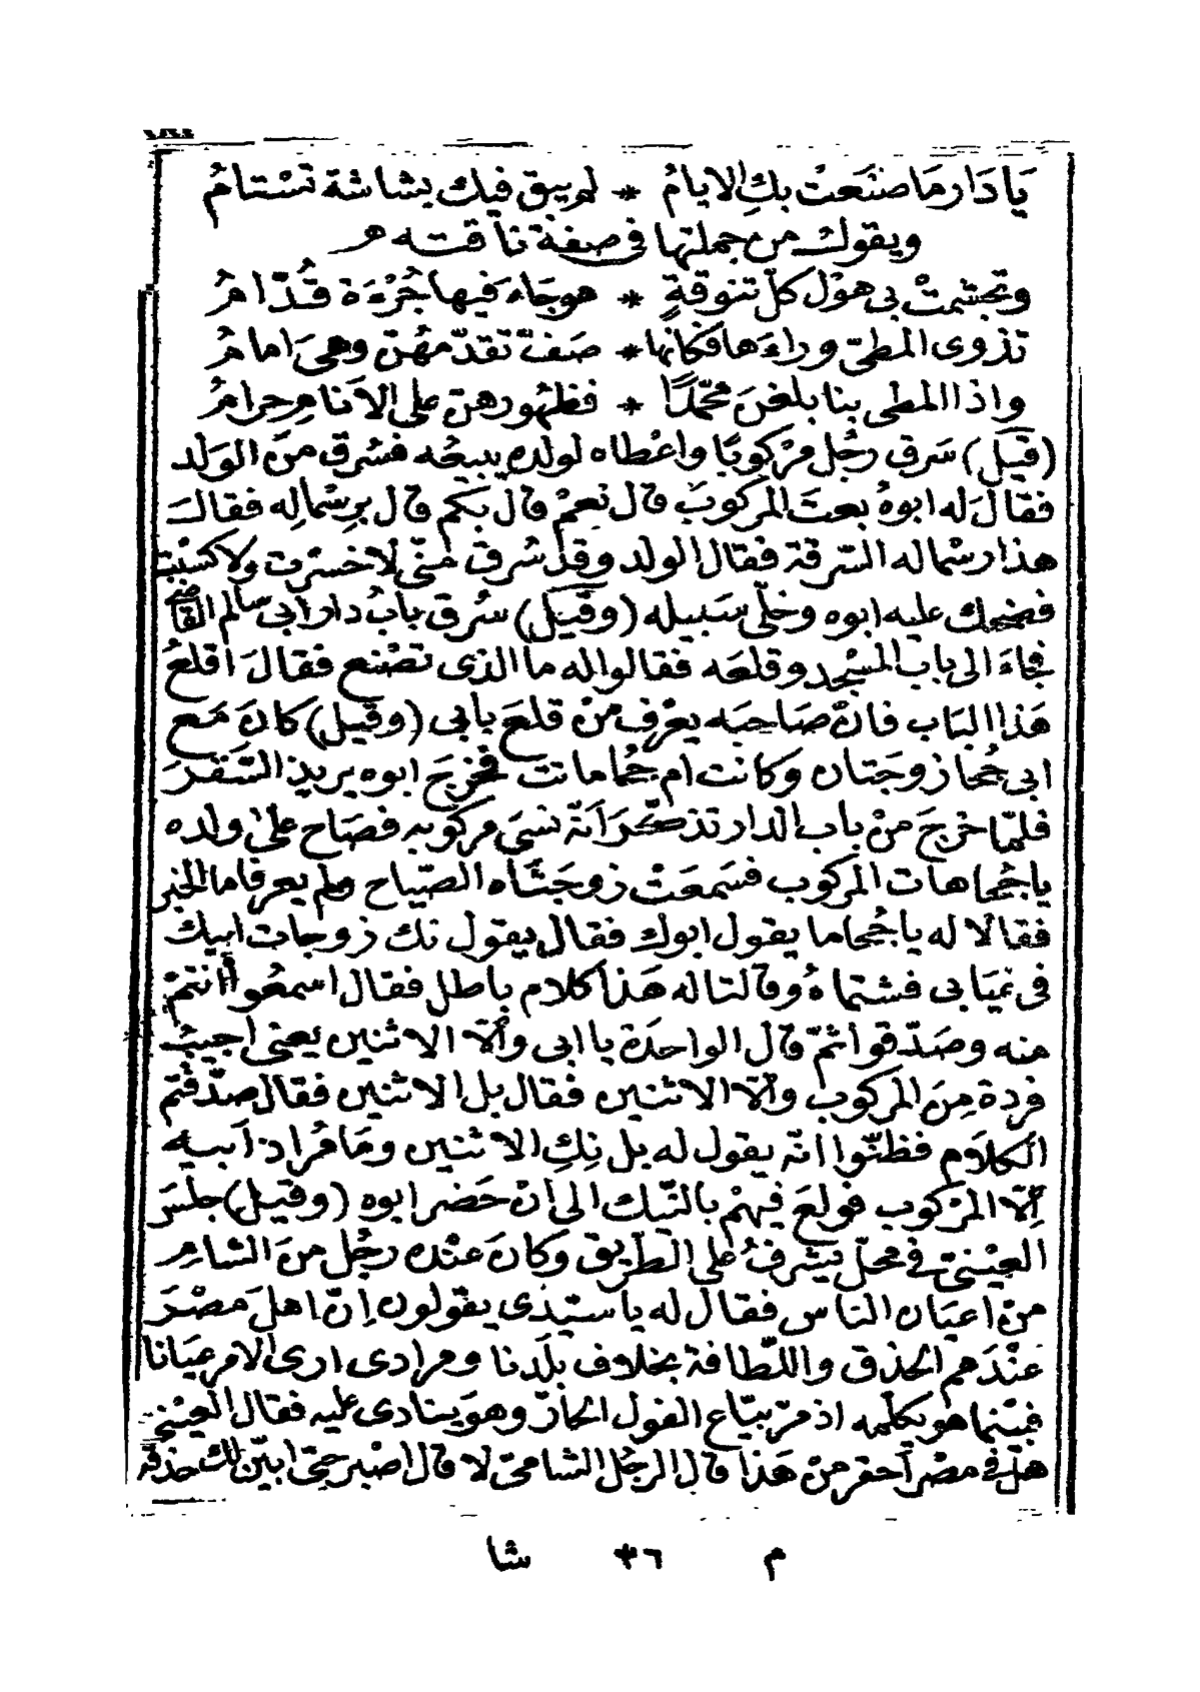 يَا دَار مَا صنَعَتْ بكِ الايامُ * لم يبق فيك بشاشة تسْتامُ
ويقول من جملتها فى صفة ناقته
وتجشمتْ بى هوْل كلّ تنوفةٍ * هوجَاء فيها جُرْءَة قُدّامُ
تذوى المطىّ وراءَها فكانها * صَفّ تقدّمهُنّ وهىَ امامُ
واذا المطى بنا بلغنَ محمّدًا * فظهُورهنّ على الاَنام حرامُ
(قيَل) سَرق رجُل مرْكوبًا واعْطاه لولده يبيعُه فسُرق منَ الولد
فقالَ له ابوهُ بعتَ المركوبَ قال نعمْ قال بكم قال برسْماله فقال
هذا رسْماله السّرقة فقال الولد وقد سُرق منّى لا خسرْت ولا كسبْت
فضحك عليه ابوه وخلّى سَبيله (وقيَل) سُرق بابُ دار ابى سالم القاضى
فجاءَ الى باب المسْجد وقلعَه فقالوا له ما الذى تصْنع فقالَ اقلعُ
هَذا الباب فانّ صَاحبَه يعْرف منْ قلعَ بابى (وقيل) كانَ مَع
ابى جُحا زوجَتان وكانت ام جُحا ماتت فخرَجَ ابوه يريد السّفرَ
فلمّا خرجَ منْ باب الدار تذكّرَ اَنّه نسىَ مركوبه فصَاح علىْ ولده
يا جُحا هات المركوب فسَمعَتْ زوجَتَاه الصّياح ولم يعرفا ما الخبر
فقالا له يا جُحا ما يقول ابوك فقال يقول نك زوجات ابيك
فى غيَابى فشتماهُ وقالتا له هَذا كلام باطل فقال اسمعُوا أنتمْ
منه وصَدّقوا ثمّ قال الواحدَة يا ابى والاّ الاثنين يعنى اجيبُ
فردة مِنَ المركوب والاّ الاثنين فقال بل الاثنين فقال صدّقتم
الكلاَم فظنّوا انّه يقول له بل نِكِ الاثنين ومَا مُراد اَبيه
اِلاّ المرْكوب فولعَ فيهمْ بالنّيك الى انْ حَضر ابوه (وقيل) جلسَ
العيْنىّ فى محلّ يشرفُ على الطّريق وكانَ عنْده رجُل منَ الشام
منْ اعيَان الناس فقال له يا سيّدى يقولون اِنّ اهلَ مصْرَ
عنْدَهم الحذق واللّطافة بخلاف بلَدنا ومرادى ارى الامر عيَانا
فبيْنما هو يكلّمه اذ مرّ بيّاع الفول الحارّ وهوَ ينادى عليه فقال العيْنى
هلْ فى مصْر اَحقر منْ هَذا قال الرجُل الشامىّ لا قال اصْبر حتى ابيّن لك حذقه
م ٣٦ شا